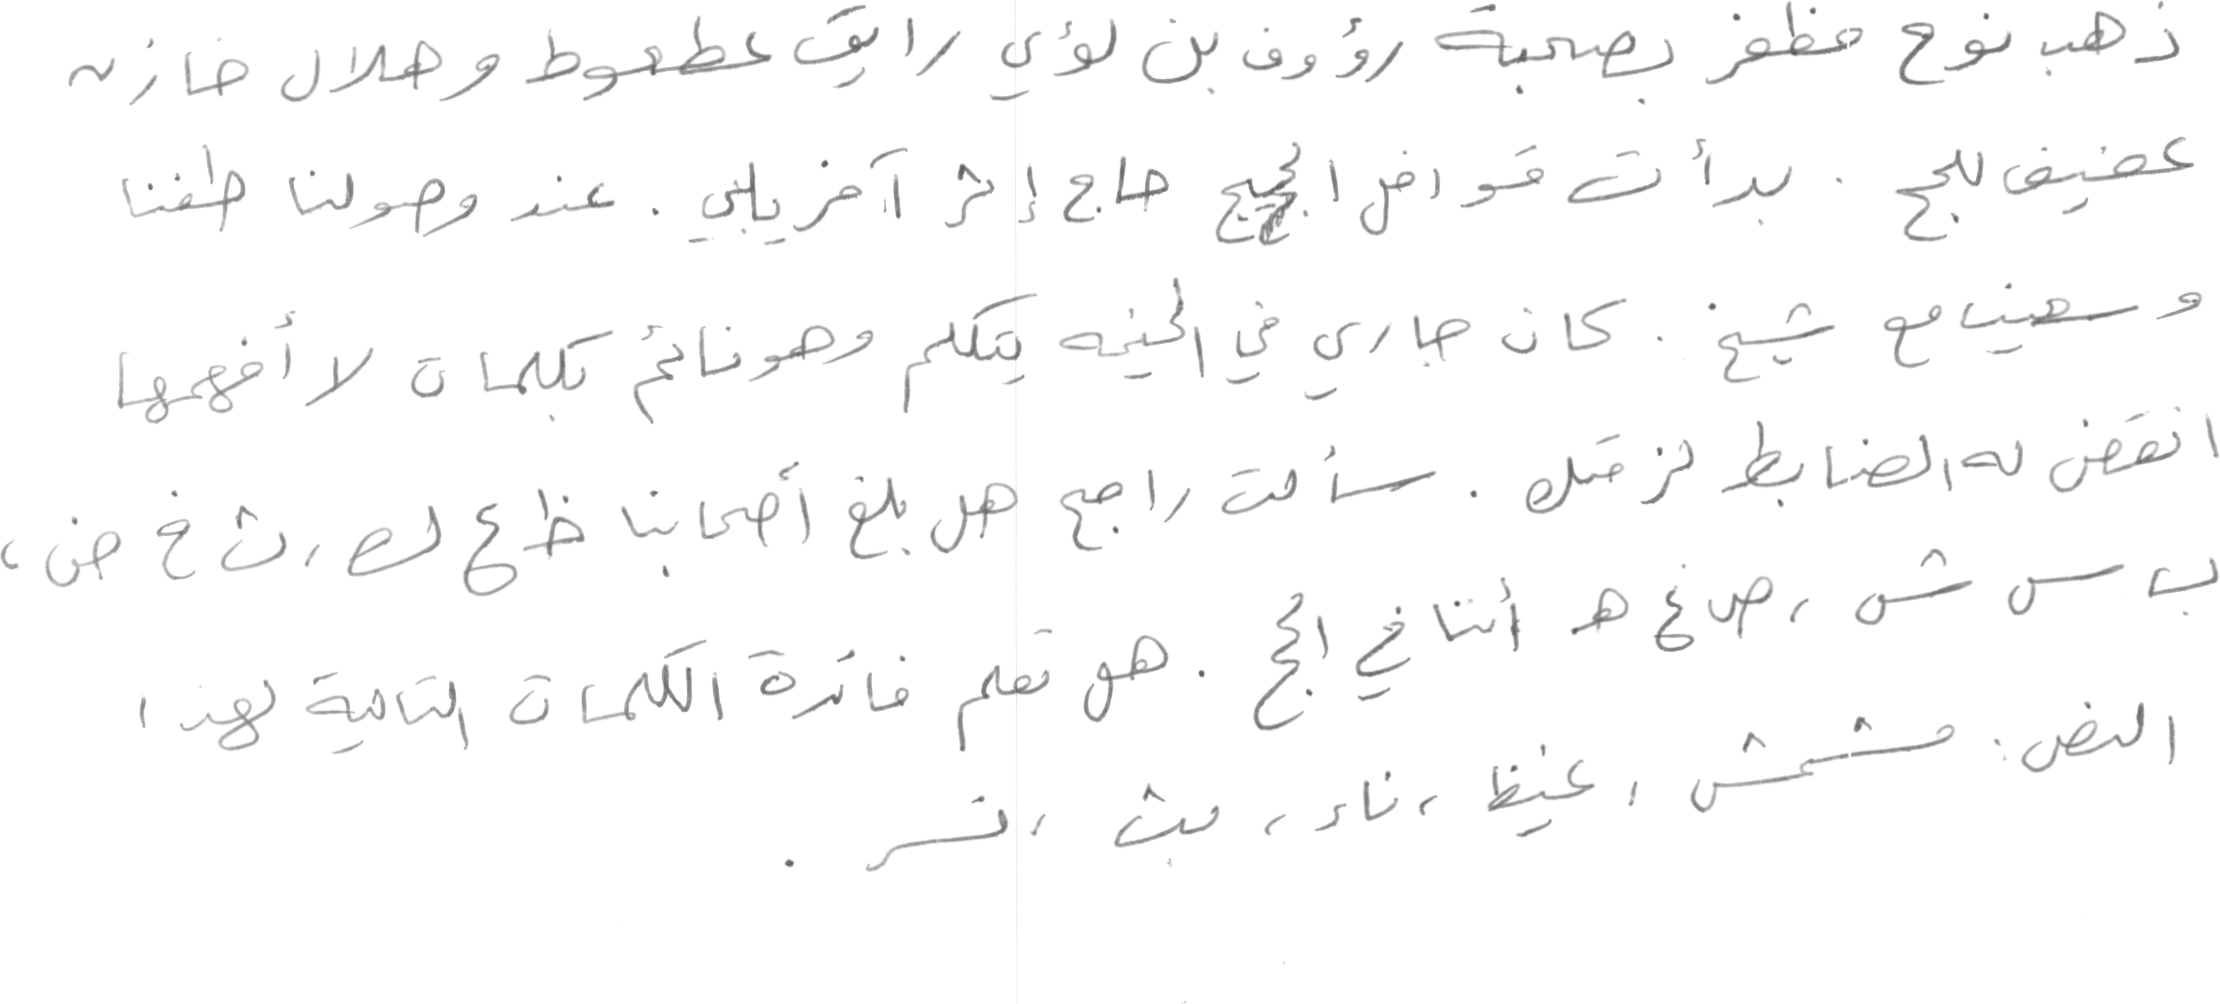 ذهب نوح مظفر بصحبة رؤوف بن لؤي رايق عطعوط وهلال خازن
عضيف للحج . بدأت قوافل الحجيج حاج إثر آخر يلبي . عند وصولنا طفنا
وسعينا مع شيخ . كان جاري في الخيمه يتكلم وهو نائم بكلمات لا أفهمها
انقض له الضابط لزقك . سألت راجح هل بلغ أصحابنا ظ ع لص ، ث خ ض ،
ب س ش ، ص غ هـ أننا في الحج . هو تعلم فائدة الكلمات التالية لهذا
النص : مشمش ، غيظ ، ناء ، بث ، نسر .